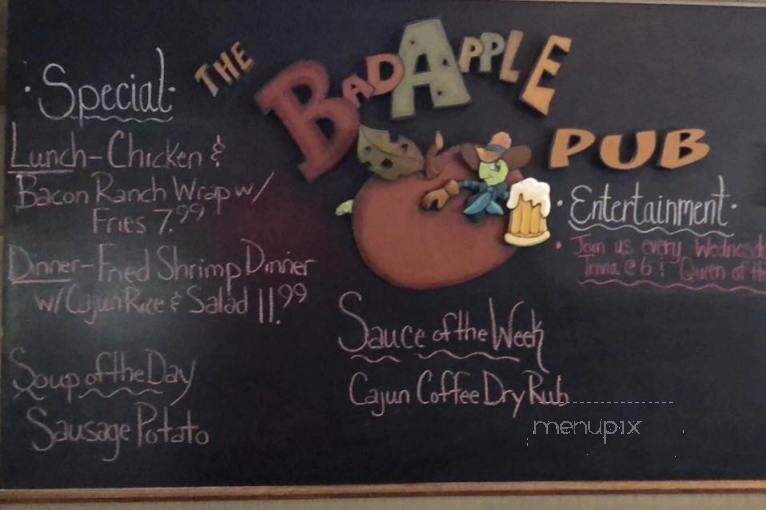 THE
BAD APPLE
PUB
·Special·
Lunch-Chicken &
Bacon Ranch Wrap w/
Fries 7.99
Dinner-Fried Shrimp Dinner
w/Cajun Rice & Salad 11.99
Soup of the Day
Sausage Potato
Sauce of the Week
Cajun Coffee Dry Rub
·Entertainment·
· Join us every Wednesd
Trivia @ 6 & Queen of
menupix